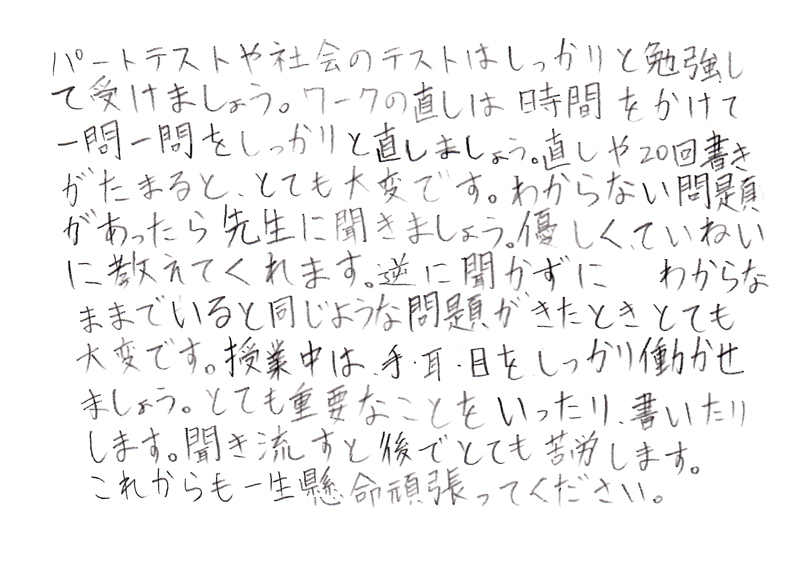 パートテストや社会のテストはしっかりと勉強し
て受けましょう。ワークの直しは時間をかけて
一問一問をしっかりと直しましょう。直しや20回書き
がたまると、とても大変です。わからない問題
があったら先生に聞きましょう。優しくていねい
に教えてくれます。逆に聞かずに わからな
ままでいると同じような問題がきたときとても
大変です。授業中は、手・耳・目をしっかり働かせ
ましょう。とても重要なことをいったり、書いたり
します。聞き流すと後でとても苦労します。
これからも一生懸命頑張ってください。